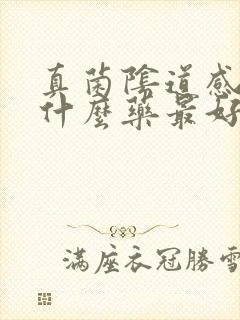 真菌陰道感
什麼藥最好
滿座衣冠勝雪